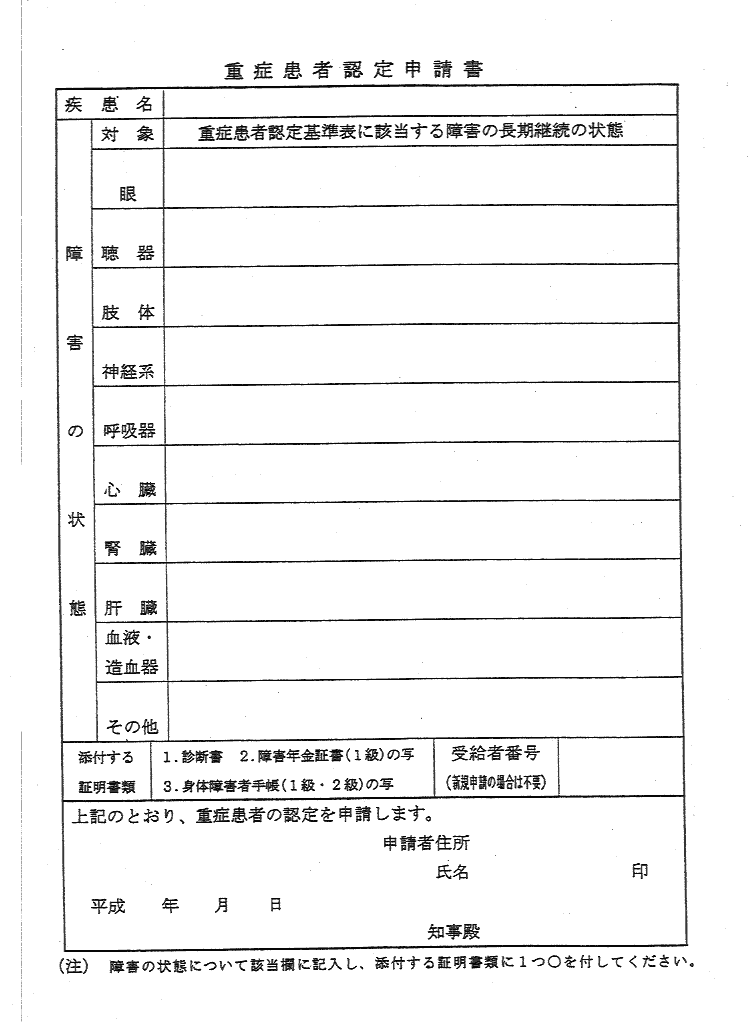 重症患者認定申請書
疾患名
対象 重症患者認定基準表に該当する障害の長期継続の状態
障害の状態
眼
聴器
肢体
神経系
呼吸器
心臓
腎臓
肝臓
血液・
造血器
その他
添付する
証明書類
1.診断書 2.障害年金証書(1級)の写
3.身体障害者手帳(1級・2級)の写
受給者番号
(新規申請の場合は不要)
上記のとおり、重症患者の認定を申請します。
申請者住所
氏名 印
平成 年 月 日
知事殿
(注) 障害の状態について該当欄に記入し、添付する証明書類に1つ〇を付してください。